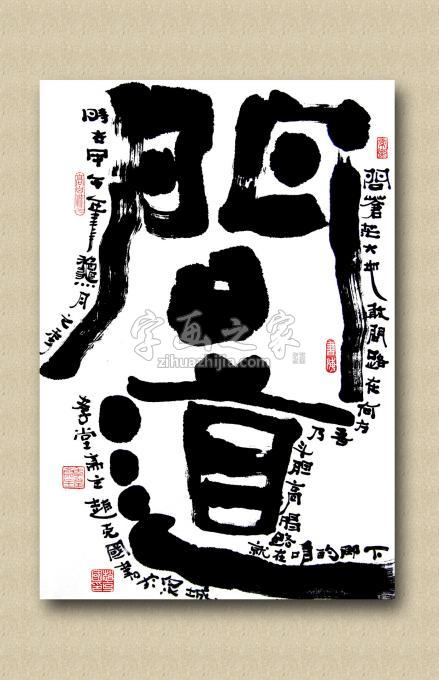 問道
問蒼茫大地敢問路在何方
吾乃斗胆高唱路
就在咱的脚下
時在甲午年
月之
堂斋主趙克國書於泉城
字画之家
zihuazhijia.com